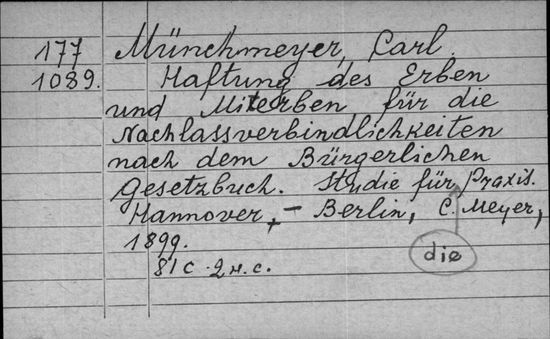 177 Münchmeyer, Carl.
1089. Haftung des Erben
und Miterben für die
Nachlassverbindlichkeiten
nach dem Bürgerlichen
Gesetzbuch. Studie für Praxis.
Hannover, - Berlin, C. Meyer,
1899.
die
81 с. 2 н.с.